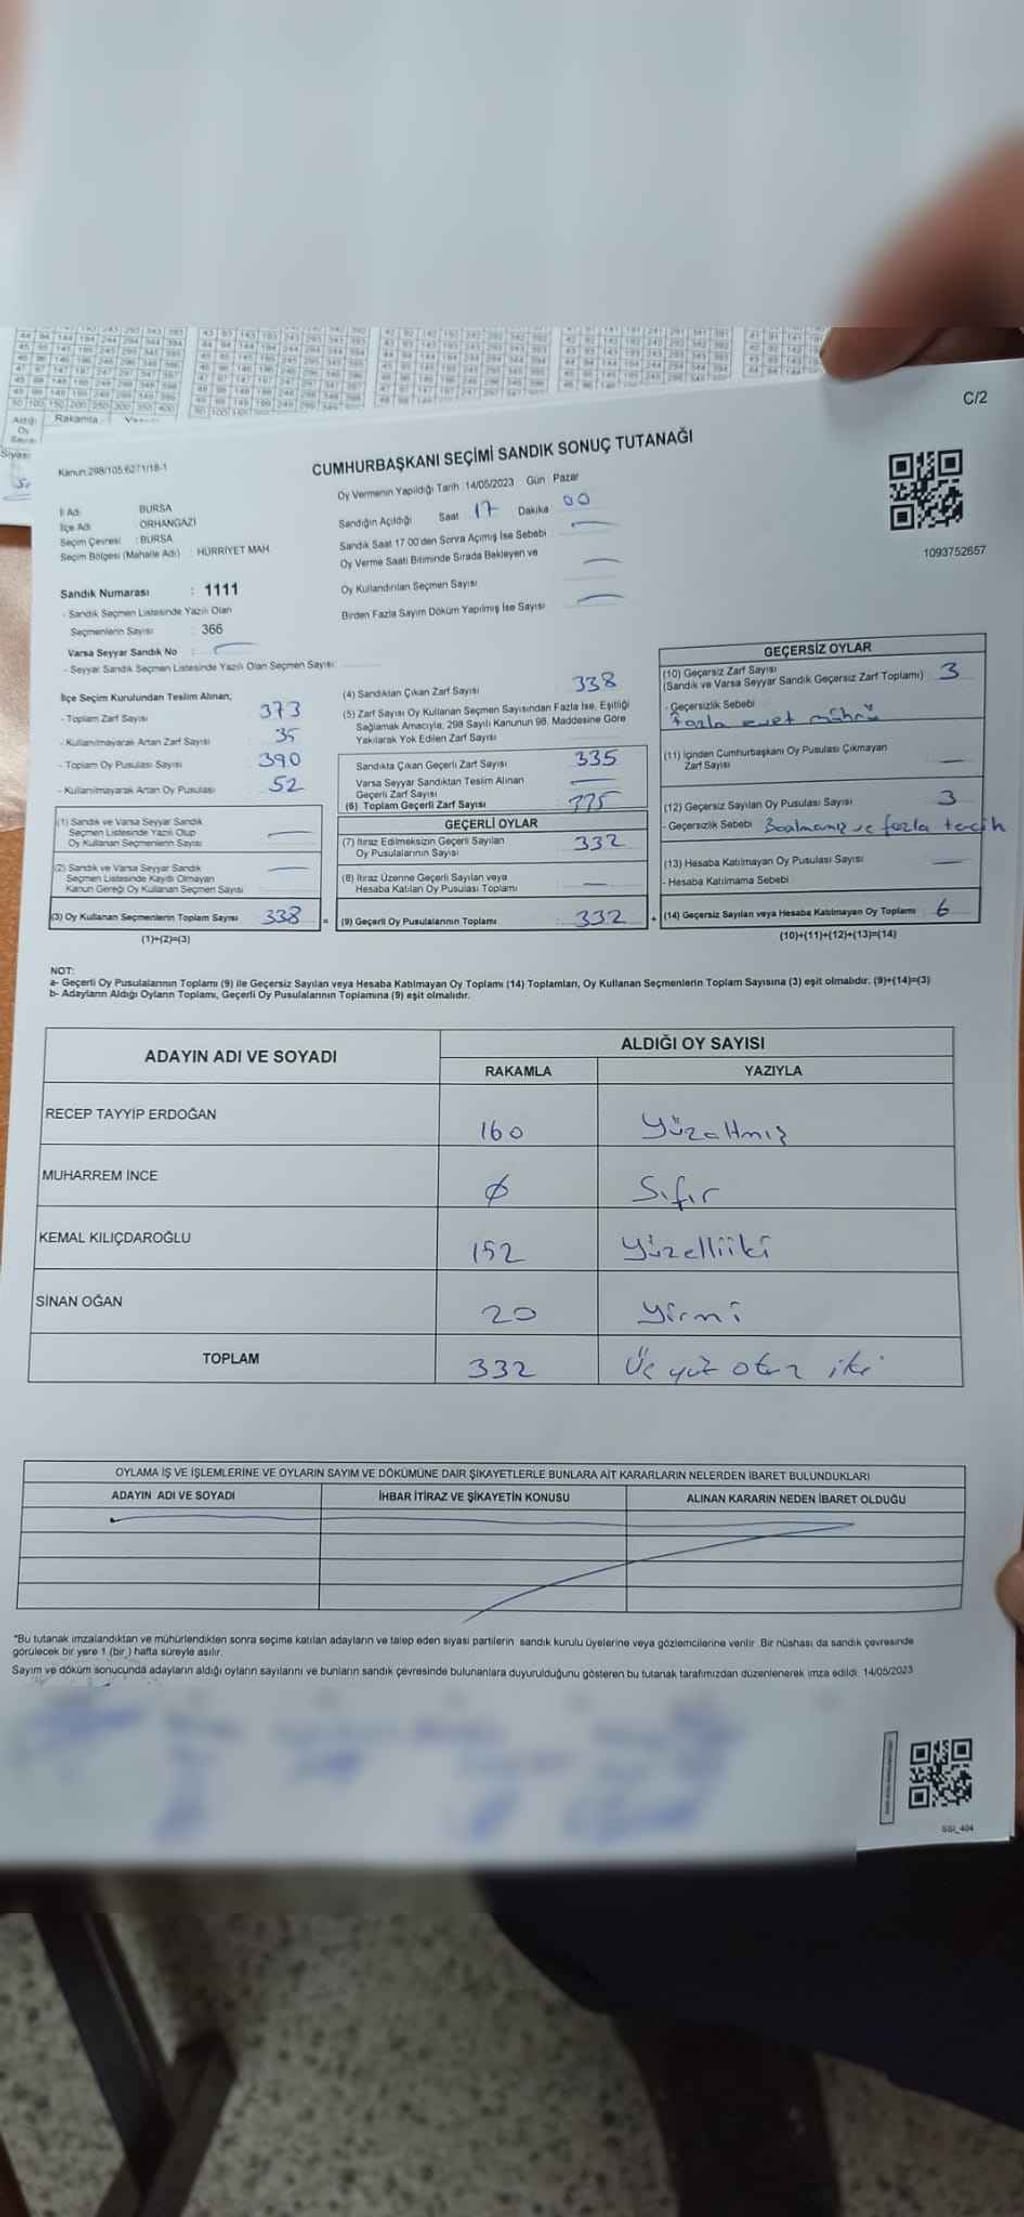 C/2
Kanun:298/105.6271/18-1
CUMHURBAŞKANI SEÇİMİ SANDIK SONUÇ TUTANAĞI
1093752657
İl Adı BURSA
İlçe Adı ORHANGAZİ
Seçim Çevresi : BURSA
Seçim Bölgesi (Mahalle Adı) : HÜRRİYET MAH
Sandık Numarası : 1111
- Sandık Seçmen Listesinde Yazılı Olan
Seçmenlerin Sayısı : 366
Varsa Seyyar Sandık No :
- Seyyar Sandık Seçmen Listesinde Yazılı Olan Seçmen Sayısı:
Oy Vermenin Yapıldığı Tarih :14/05/2023 Gün Pazar
Sandığın Açıldığı Saat 17 Dakika 00
Sandık Saat 17:00'den Sonra Açılmış İse Sebebi
Oy Verme Saati Bitiminde Sırada Bekleyen ve
Oy Kullandırılan Seçmen Sayısı
Birden Fazla Sayım Döküm Yapılmış İse Sayısı
İlçe Seçim Kurulundan Teslim Alınan;
- Toplam Zarf Sayısı 373
- Kullanılmayarak Artan Zarf Sayısı 35
- Toplam Oy Pusulası Sayısı 390
- Kullanılmayarak Artan Oy Pusulası 52
(1) Sandık ve Varsa Seyyar Sandık
Seçmen Listesinde Yazılı Olup
Oy Kullanan Seçmenlerin Sayısı
(2) Sandık ve Varsa Seyyar Sandık
Seçmen Listesinde Kaydı Olmayan
Kanun Gereği Oy Kullanan Seçmen Sayısı
(3) Oy Kullanan Seçmenlerin Toplam Sayısı 338
(1)+(2)=(3)
(4) Sandıktan Çıkan Zarf Sayısı 338
(5) Zarf Sayısı Oy Kullanan Seçmen Sayısından Fazla İse, Eşitliği
Sağlamak Amacıyla, 298 Sayılı Kanunun 98. Maddesine Göre
Yakılarak Yok Edilen Zarf Sayısı
Sandıkta Çıkan Geçerli Zarf Sayısı 335
Varsa Seyyar Sandıktan Teslim Alınan
Geçerli Zarf Sayısı
(6) Toplam Geçerli Zarf Sayısı 335
GEÇERLİ OYLAR
(7) İtiraz Edilmeksizin Geçerli Sayılan
Oy Pusulalarının Sayısı 332
(8) İtiraz Üzerine Geçerli Sayılan veya
Hesaba Katılan Oy Pusulası Toplamı
=
(9) Geçerli Oy Pusulalarının Toplamı 332
+
GEÇERSİZ OYLAR
(10) Geçersiz Zarf Sayısı 3
(Sandık ve Varsa Seyyar Sandık Geçersiz Zarf Toplamı)
- Geçersizlik Sebebi
Fazla evet mührü
(11) İçinden Cumhurbaşkanı Oy Pusulası Çıkmayan
Zarf Sayısı
(12) Geçersiz Sayılan Oy Pusulası Sayısı 3
- Geçersizlik Sebebi ve fazla tercih
(13) Hesaba Katılmayan Oy Pusulası Sayısı
- Hesaba Katılmama Sebebi
(14) Geçersiz Sayılan veya Hesaba Katılmayan Oy Toplamı 6
(10)+(11)+(12)+(13)=(14)
NOT:
a- Geçerli Oy Pusulalarının Toplamı (9) ile Geçersiz Sayılan veya Hesaba Katılmayan Oy Toplamı (14) Toplamları, Oy Kullanan Seçmenlerin Toplam Sayısına (3) eşit olmalıdır. (9)+(14)=(3)
b- Adayların Aldığı Oyların Toplamı, Geçerli Oy Pusulalarının Toplamına (9) eşit olmalıdır.
ADAYIN ADI VE SOYADI ALDIĞI OY SAYISI
RAKAMLA YAZIYLA
RECEP TAYYİP ERDOĞAN 160 Yüzaltmış
MUHARREM İNCE 0 Sıfır
KEMAL KILIÇDAROĞLU 152 Yüzelliiki
SİNAN OĞAN 20 Yirmi
TOPLAM 332 Üç yüz otuz iki
OYLAMA İŞ VE İŞLEMLERİNE VE OYLARIN SAYIM VE DÖKÜMÜNE DAİR ŞİKAYETLERLE BUNLARA AİT KARARLARIN NELERDEN İBARET BULUNDUKLARI
ADAYIN ADI VE SOYADI İHBAR İTİRAZ VE ŞİKAYETİN KONUSU ALINAN KARARIN NEDEN İBARET OLDUĞU
*Bu tutanak imzalandıktan ve mühürlendikten sonra seçime katılan adayların ve talep eden siyasi partilerin sandık kurulu üyelerine veya gözlemcilerine verilir. Bir nüshası da sandık çevresinde
görülecek bir yere 1 (bir ) hafta süreyle asılır.
Sayım ve döküm sonucunda adayların aldığı oyların sayılarını ve bunların sandık çevresinde bulunanlara duyurulduğunu gösteren bu tutanak tarafımızdan düzenlenerek imza edildi. 14/05/2023